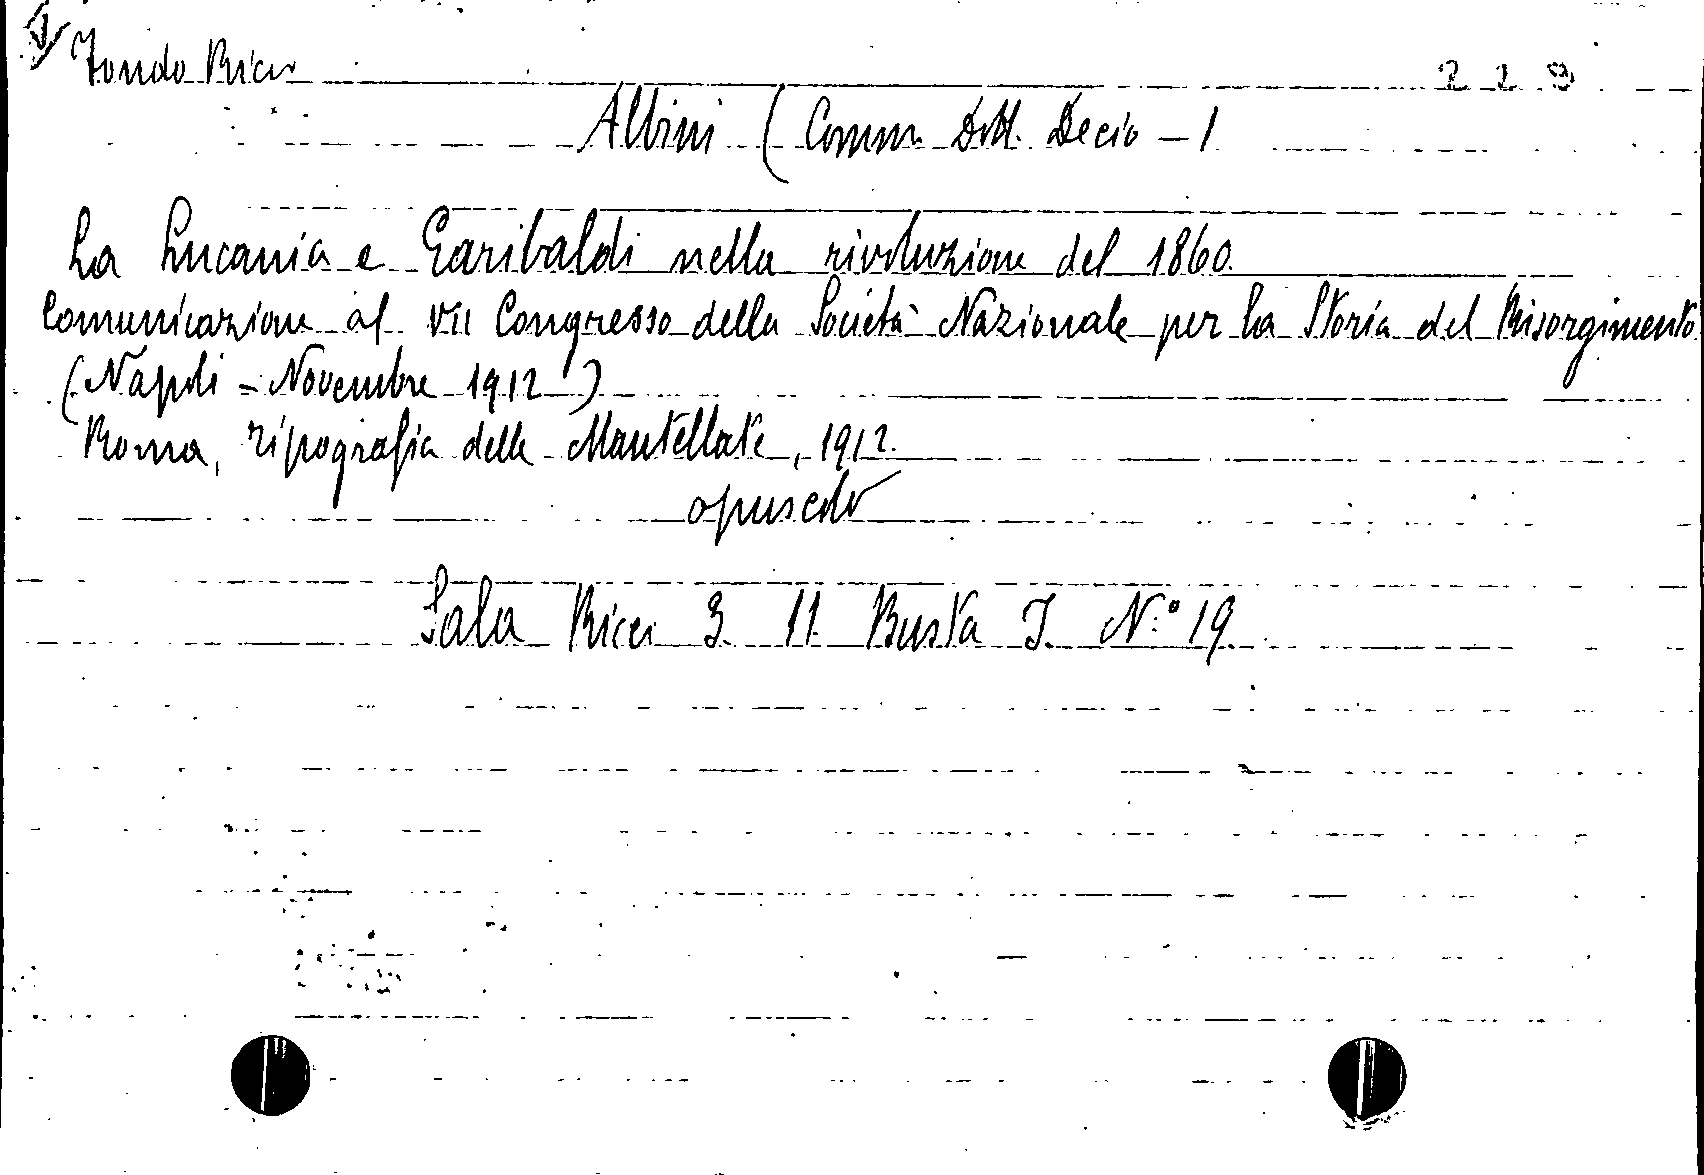 Fondo Ricci 229
Albini (Comm. Dott. Decio - )
La Lucania e Garibaldi nella rivoluzione del 1860.
Comunicazione al VII Congresso della Società Nazionale per la Storia del Risorgimento
(Napoli - Novembre 1912)
Roma, Tipografia delle Mantellate, 1912.
opuscolo
Sala Ricci 3. 11. Busta I. N.° 19.